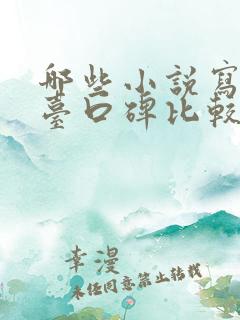 哪些小說寫
臺口碑比較
李漫
未经同意禁止转载